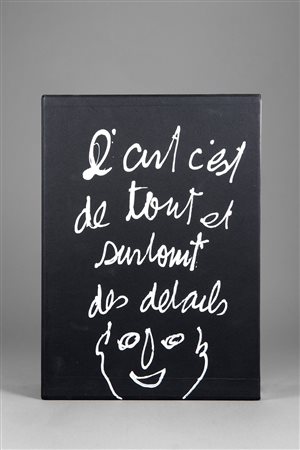 L'art c'est
de tout et
surtout
des details